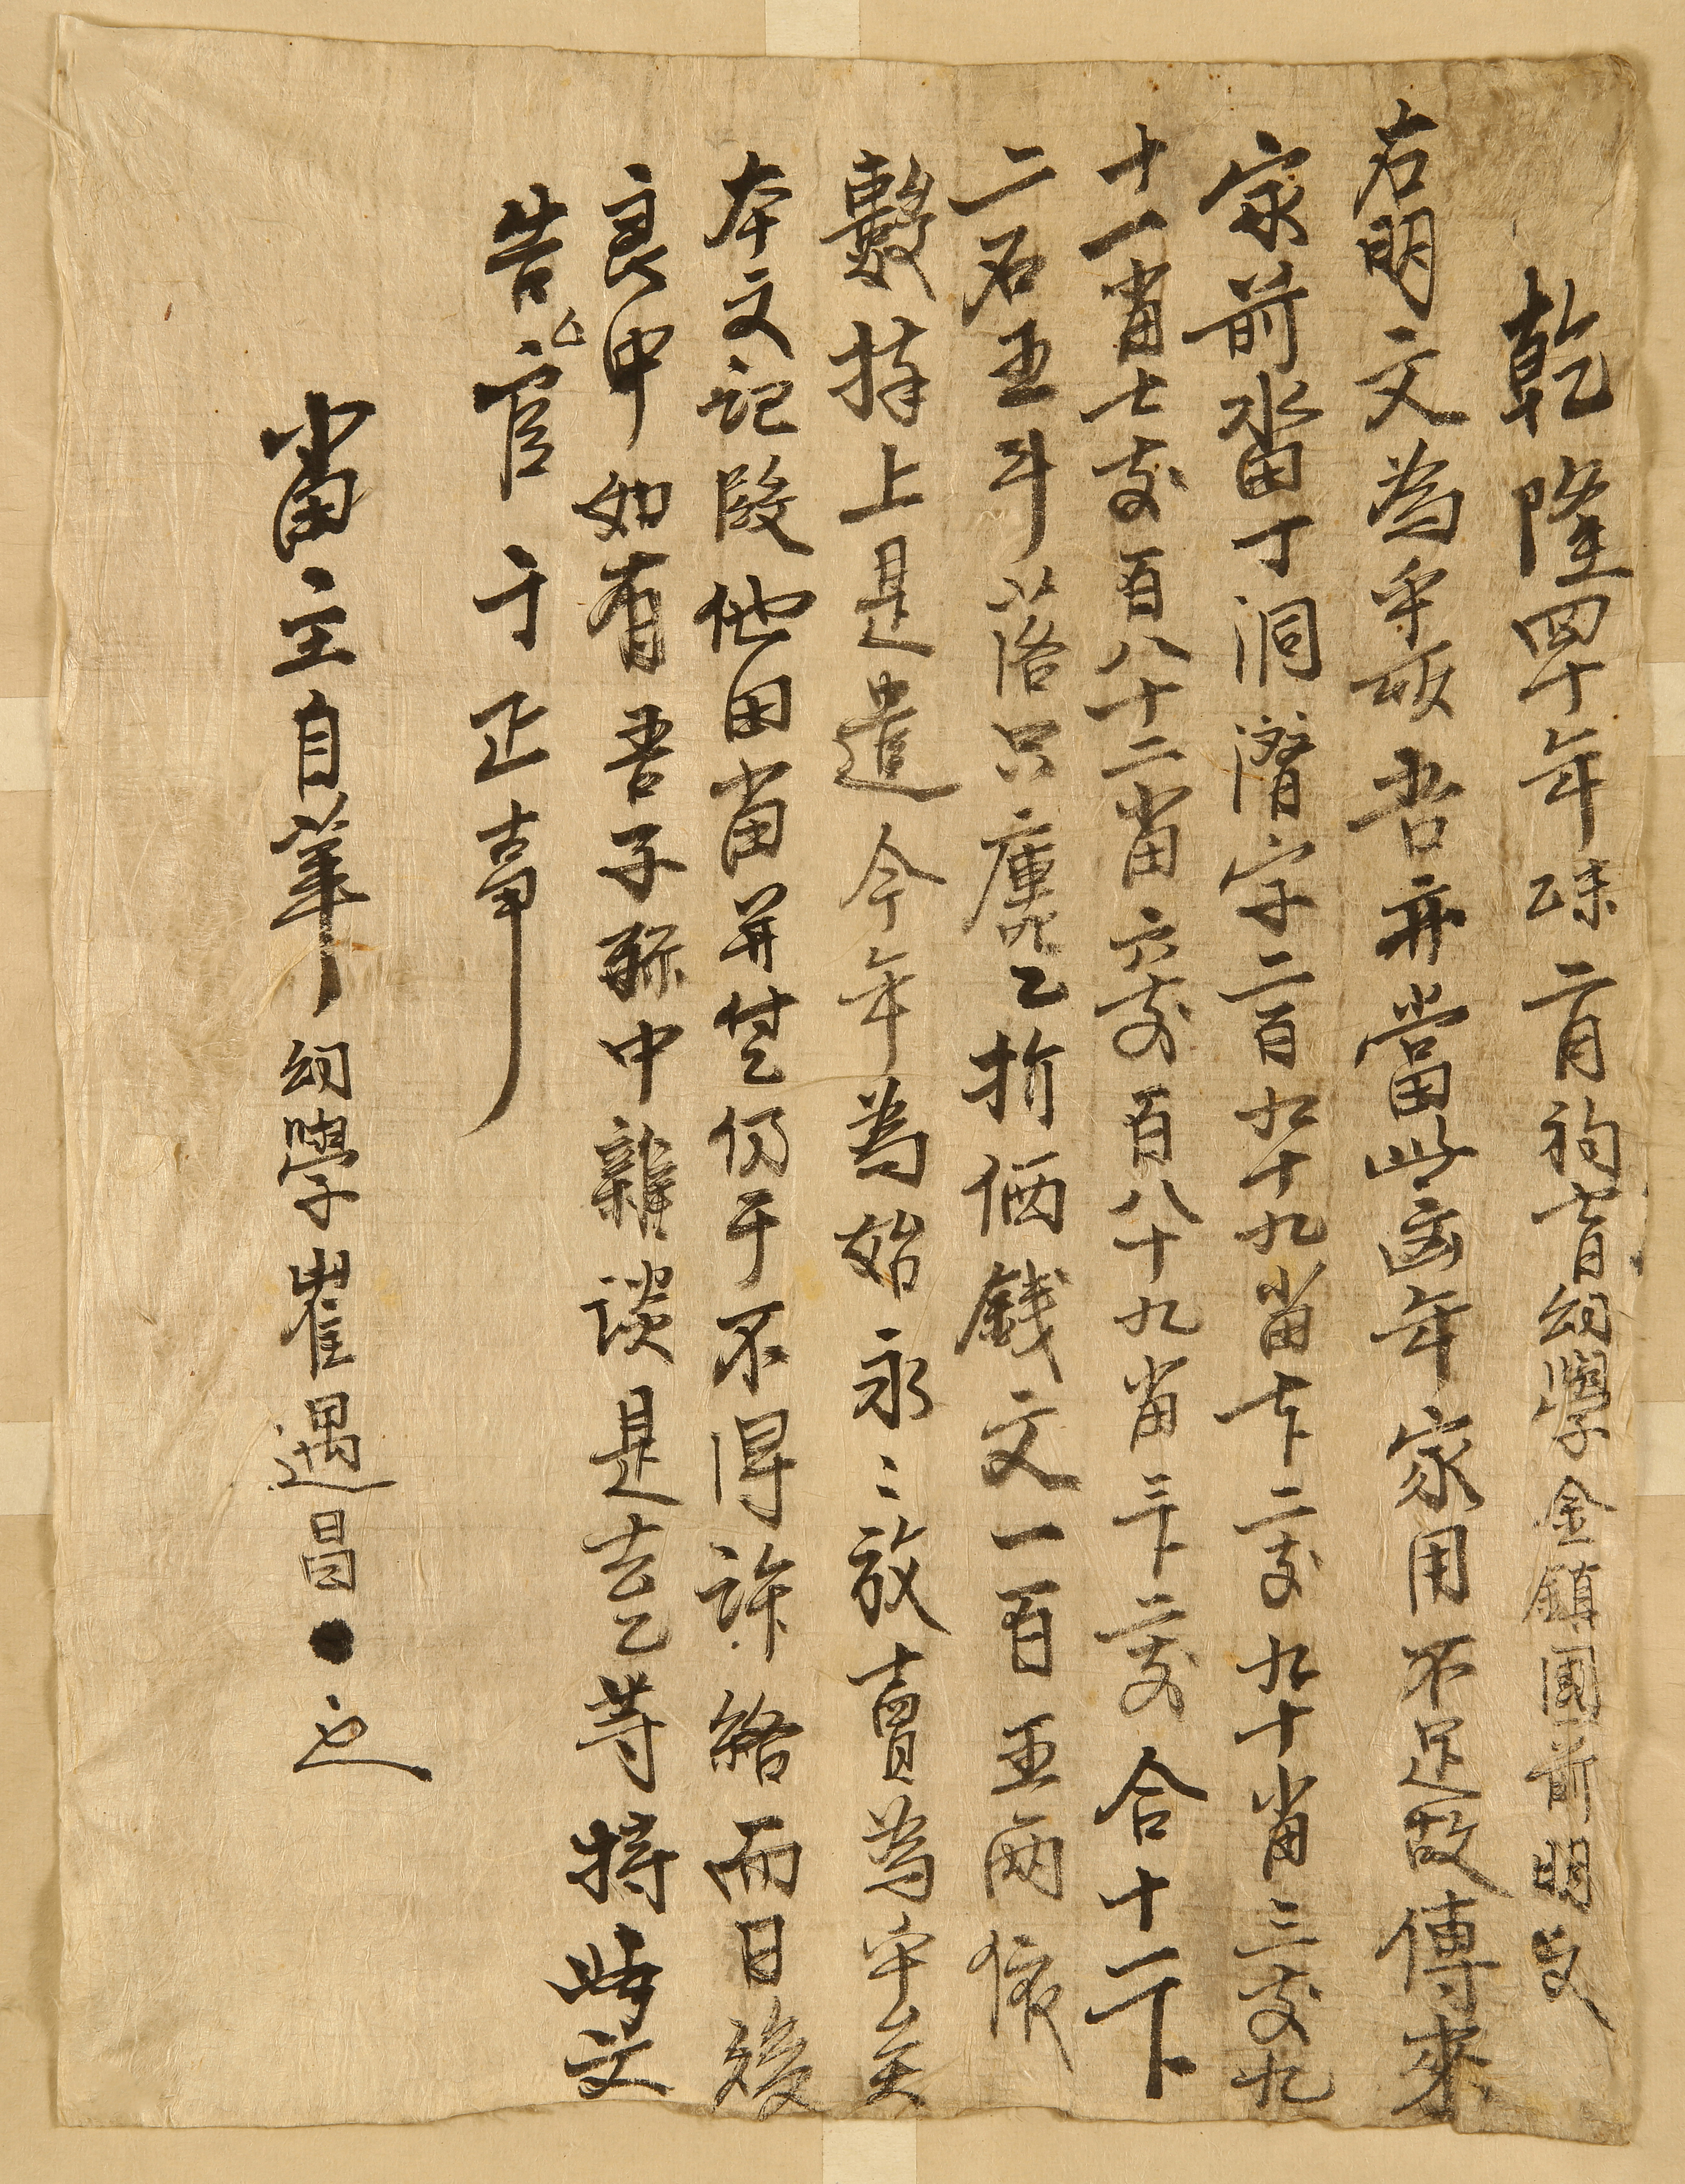 乾隆四十年乙未二月初七日幼學金鎮國前明文
右明文爲乎㫆吾亦當此凶年家用不足故傳來
家前畓丁洞潛字二百九十九畓七卜二束九十畓三束九
十一畓七束百八十二畓六束百八十九畓三卜二束合十一卜
二石五斗落只廛乙折価錢文一百五兩依
數捧上是遣今年爲始永〻放賣爲乎矣
本文記段他田畓并付乙仍于不得許給而日後
良中如有吾子孫中雜談是去乙等持此文
告官卞正事
畓主自筆幼學崔遇昌●